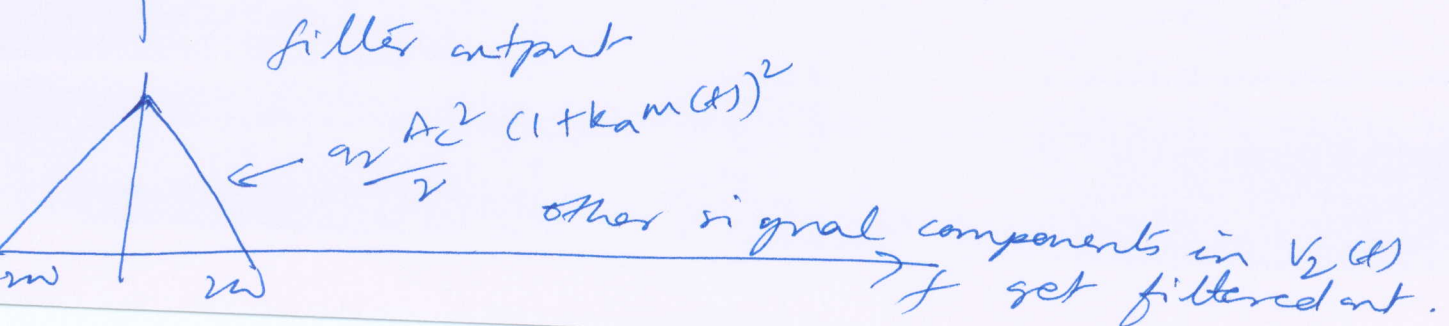 filter output
a₂ Ac²/2 (1+kam(t))²
other signal components in V₂(t)
f get filtered out.
2W 2W